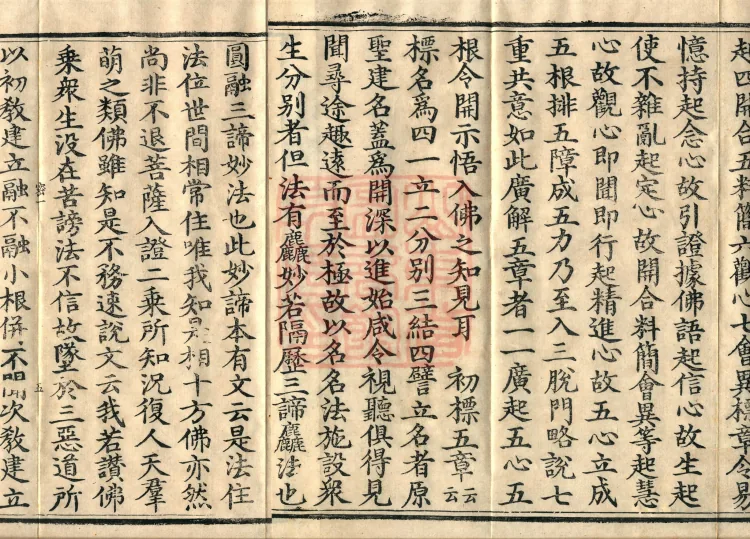 起四開合五料簡六觀心七會異標章令易
憶持起念心故引證據佛語起信心故生起
使不雜亂起定心故開合料簡會異等起慧
心故觀心即聞即行起精進心故五心立成
五根排五障成五力乃至入三脫門略說七
重共意如此廣解五章者一一廣起五心五
根令開示悟入佛之知見耳 初標五章云云
標名為四一立二分別三結四譬立名者原
聖建名蓋為開深以進始咸令視聽俱得見
聞尋途趣遠而至於極故以名名法施設眾
生分別者但法有麤妙若隔歷三諦麤法也
圓融三諦妙法也此妙諦本有文云是法住
法位世間相常住唯我知是相十方佛亦然
尚非不退菩薩入證二乘所知況復人天羣
萌之類佛雖知是不務速說文云我若讚佛
乘衆生沒在苦謗法不信故墜於三惡道所
以初教建立融不融小根併不聞次教建立
五